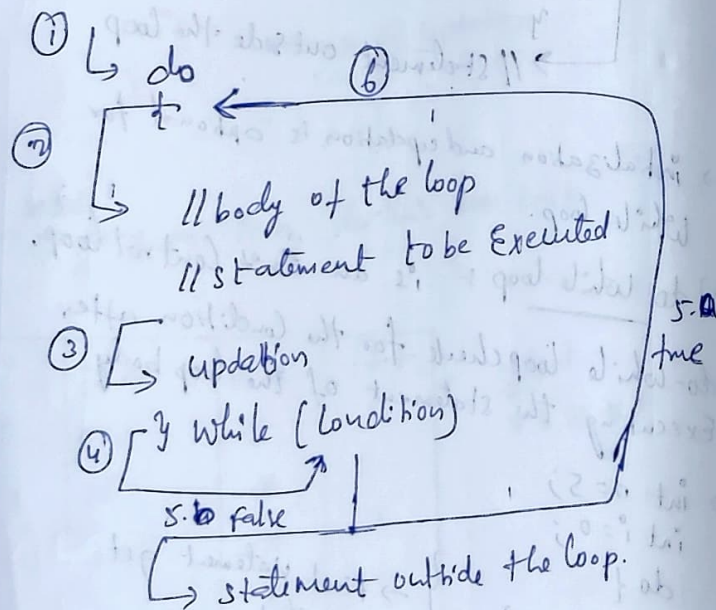 ① do
⑥
{
②
// body of the loop
// statement to be Executed
5.a
true
③ updation
④ } while (Condition)
5.b false
statement outside the loop.